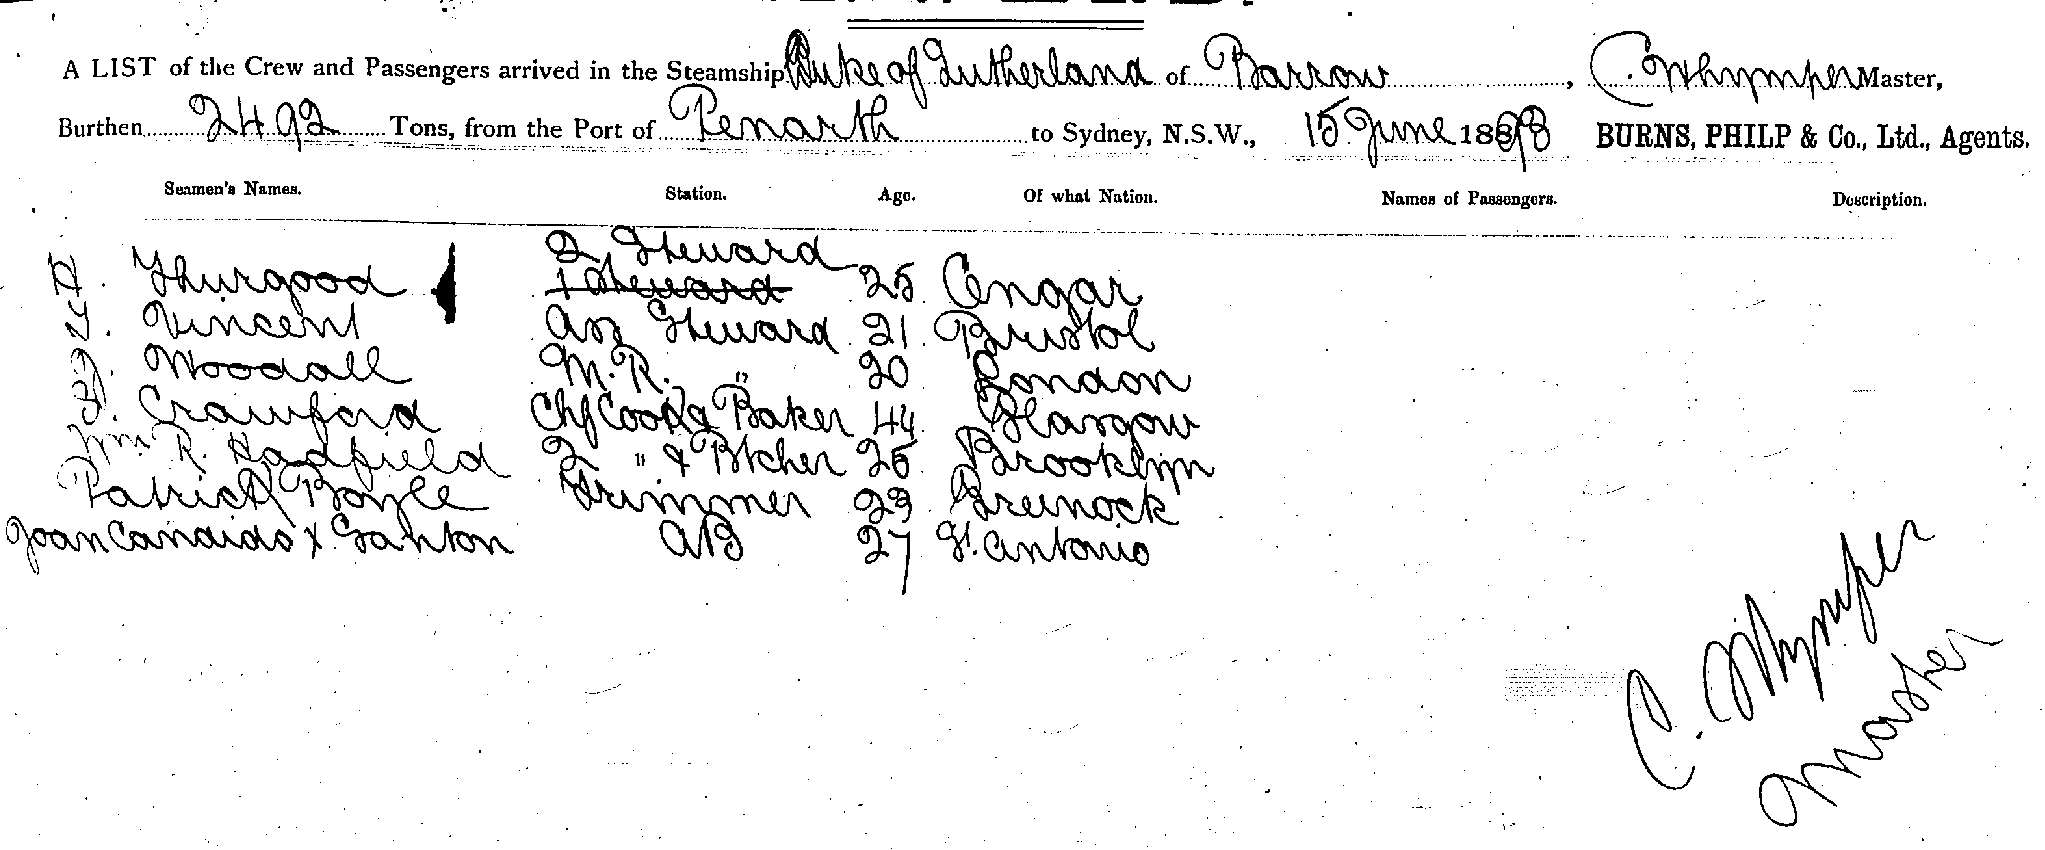 A LIST of the Crew and Passengers arrived in the Steamship Duke of Sutherland of Barrow, C. Whymper Master,
Burthen 2492 Tons, from the Port of Penarth to Sydney, N.S.W., 15 June 1888 BURNS, PHILP & Co., Ltd., Agents.
Seamen's Names. Station. Age. Of what Nation. Names of Passengers. Description.
2 Steward
H. Thurgood 1 Steward 25 Ongar
Vincent Ass Steward 21 Bristol
Woodall M. R. " 20 London
Crawford Chf Cook & Baker 44 Glasgow
Wm R. Hadfield 2 " & Btcher 26 Brooklyn
Patrick Boyle Trimmer 23 Greenock
Joan Candido x AB 27 St. Antonio
C. Whymper
Master